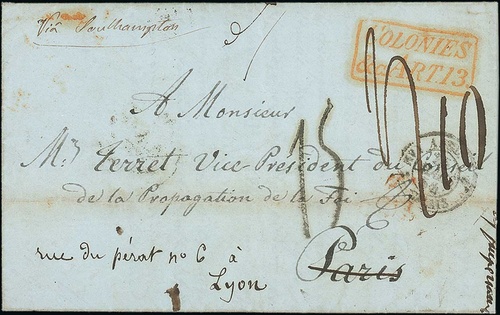 Via Southampton
COLONIES
&c. ART. 13
A Monsieur
Mr Terret, Vice Président du Conseil
de la Propagation de la Foi
15
10
rue du pérat no 6 à
Lyon
Paris